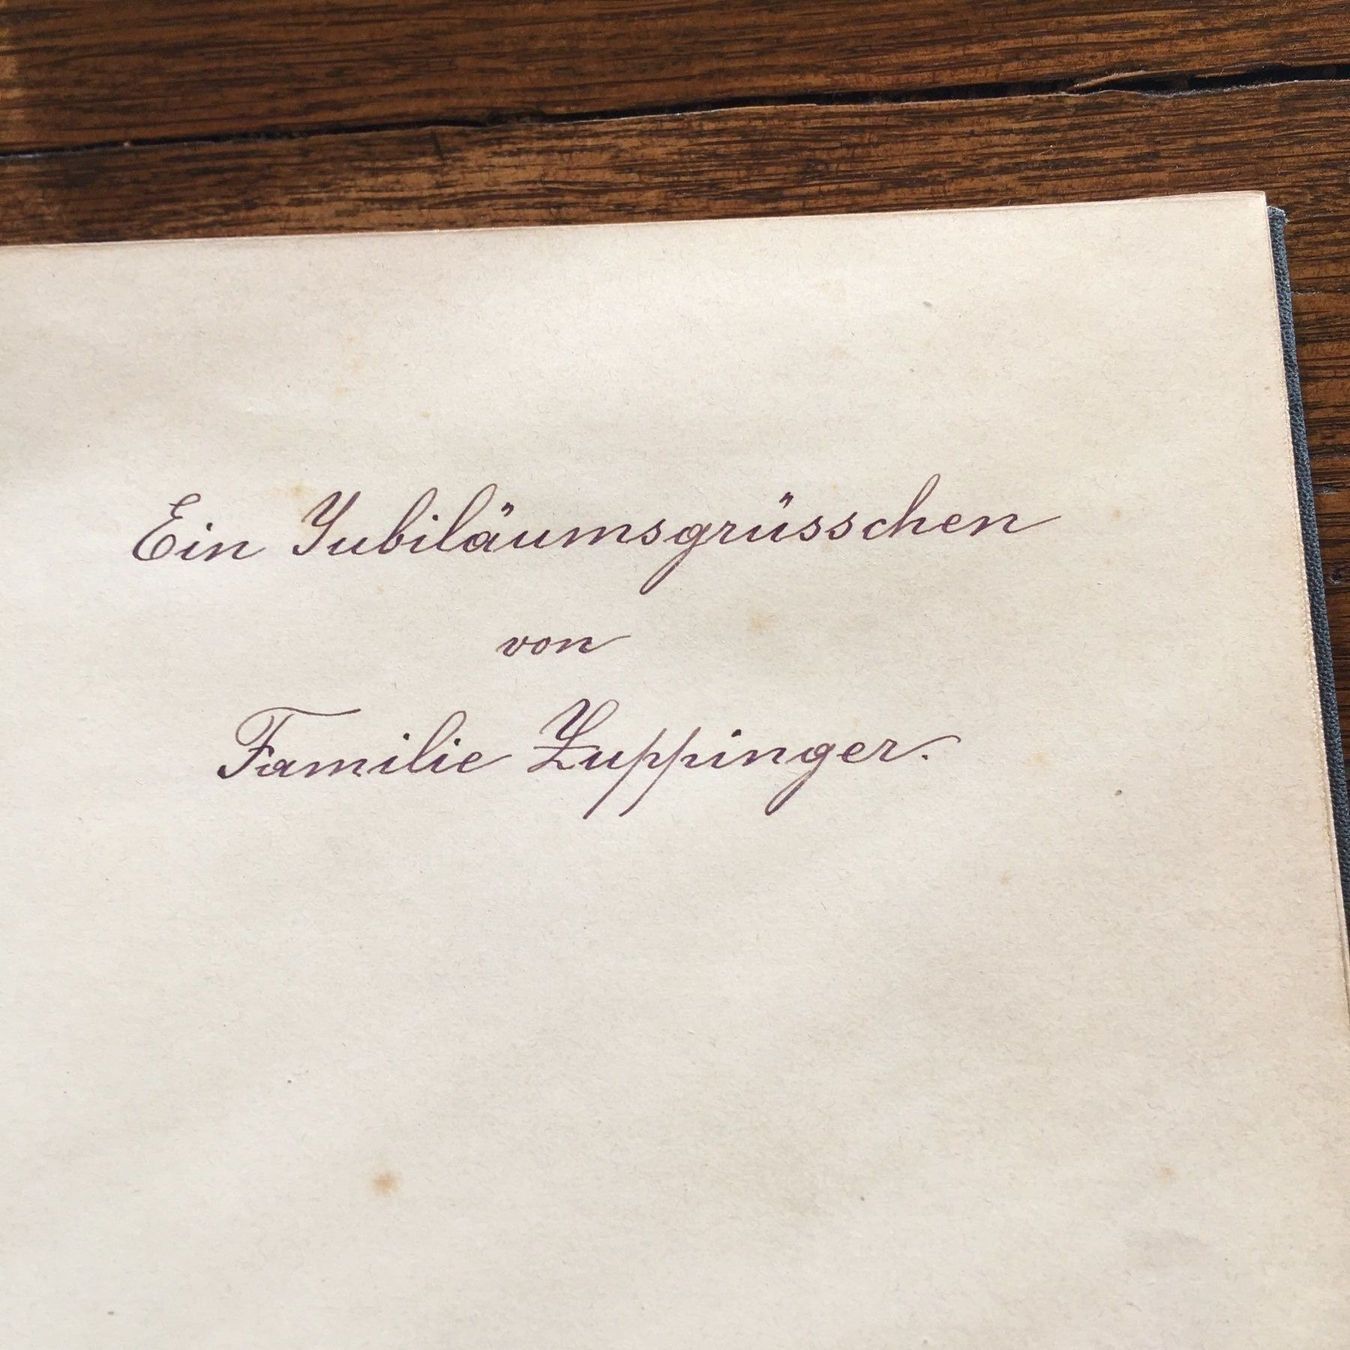 Ein Jubiläumsgrüsschen
von
Familie Zuppinger.